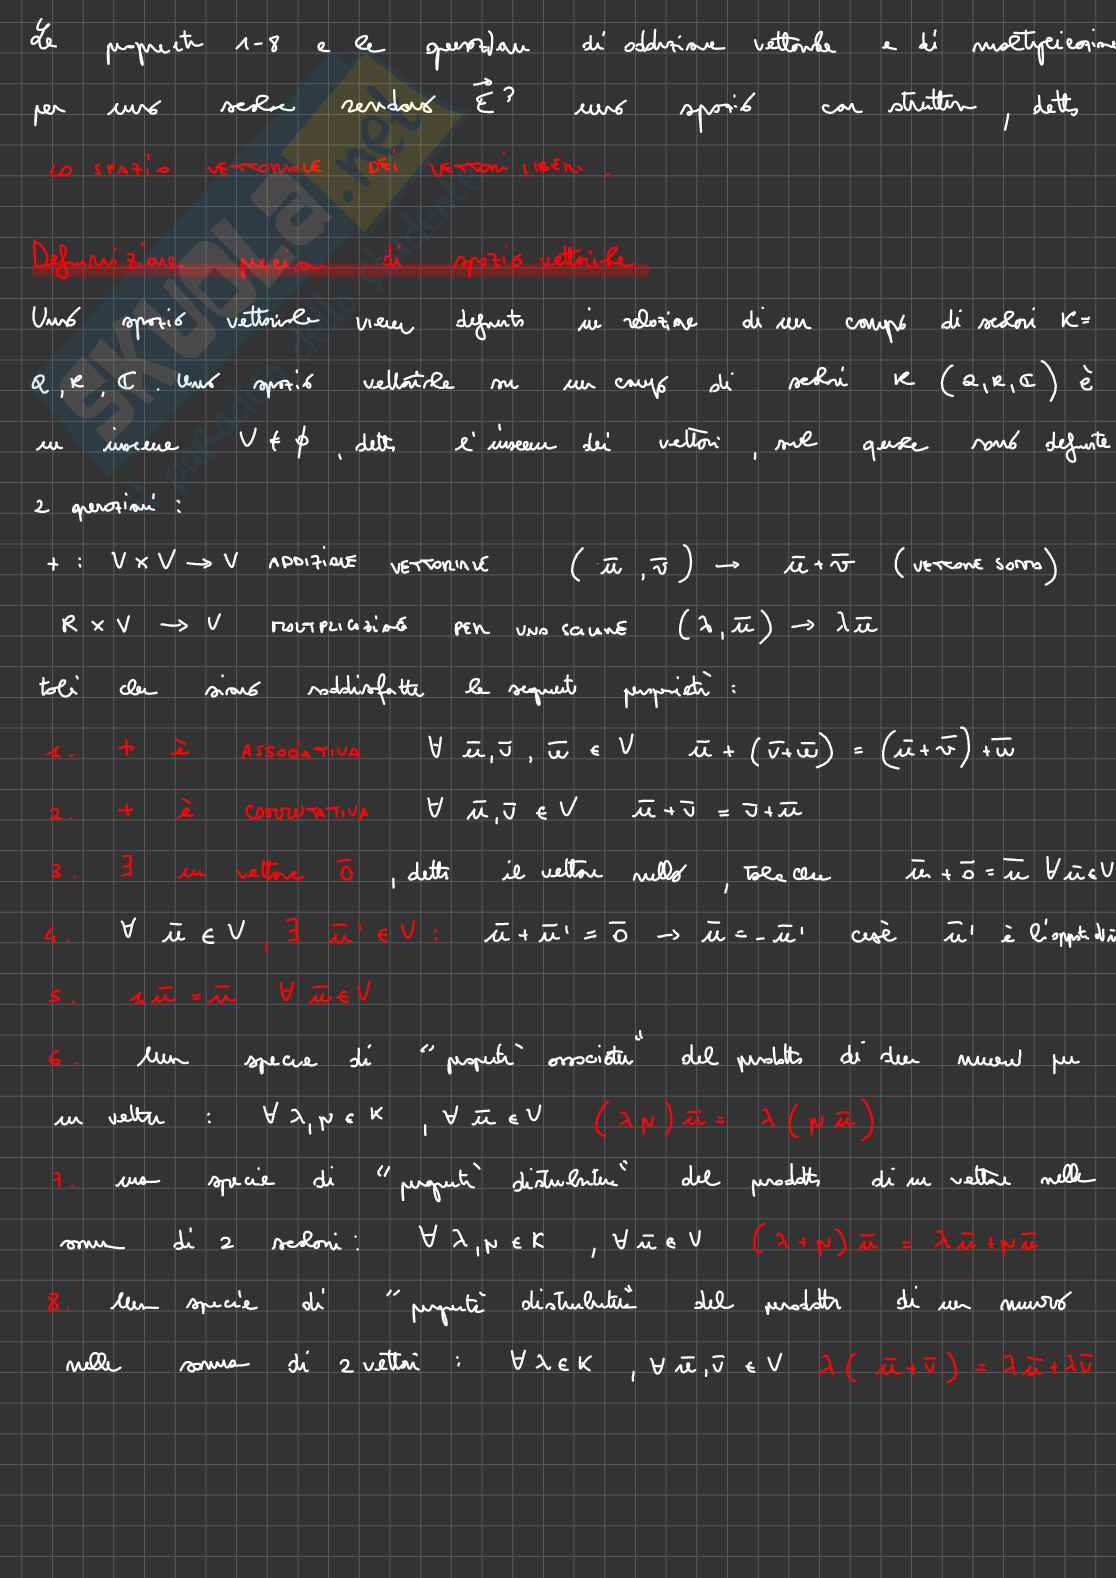 Le proprietà 1-8 e le operazioni di addizione vettoriale e di moltiplicazione
per uno scalare rendono E³ uno spazio con struttura, detto
LO SPAZIO VETTORIALE DEI VETTORI LIBERI.
Definizione precisa di spazio vettoriale
Uno spazio vettoriale viene definito in relazione di un campo di scalari K=
Q, R, C. Uno spazio vettoriale su un campo di scalari K (Q, R, C) è
un insieme V ≠ ϕ, detto l'insieme dei vettori, sul quale sono definite
2 operazioni:
+ : V × V → V ADDIZIONE VETTORIALE (ū, v̄) → ū + v̄ (VETTORE SOMMA)
R × V → V MOLTIPLICAZIONE PER UNO SCALARE (λ, ū) → λū
tali che siano soddisfatte le seguenti proprietà:
1. + è ASSOCIATIVA ∀ ū, v̄, w̄ ∈ V ū + (v̄ + w̄) = (ū + v̄) + w̄
2. + è COMMUTATIVA ∀ ū, v̄ ∈ V ū + v̄ = v̄ + ū
3. ∃ un vettore 0̄, detto il vettore nullo, tale che ū + 0̄ = ū ∀ ū ∈ V
4. ∀ ū ∈ V, ∃ ū' ∈ V: ū + ū' = 0̄ → ū = -ū' cioè ū' è l'opposto di ū
5. 1ū = ū ∀ ū ∈ V
6. Una specie di "proprietà associativa" del prodotto di due numeri per
un vettore : ∀ λ, μ ∈ K, ∀ ū ∈ V (λμ)ū = λ(μū)
7. una specie di "proprietà distributiva" del prodotto di un vettore nella
somma di 2 scalari: ∀ λ, μ ∈ K, ∀ ū ∈ V (λ + μ)ū = λū + μū
8. Una specie di "proprietà distributiva" del prodotto di un numero
nella somma di 2 vettori : ∀ λ ∈ K, ∀ ū, v̄ ∈ V λ(ū + v̄) = λū + λv̄
SKUOLA.net